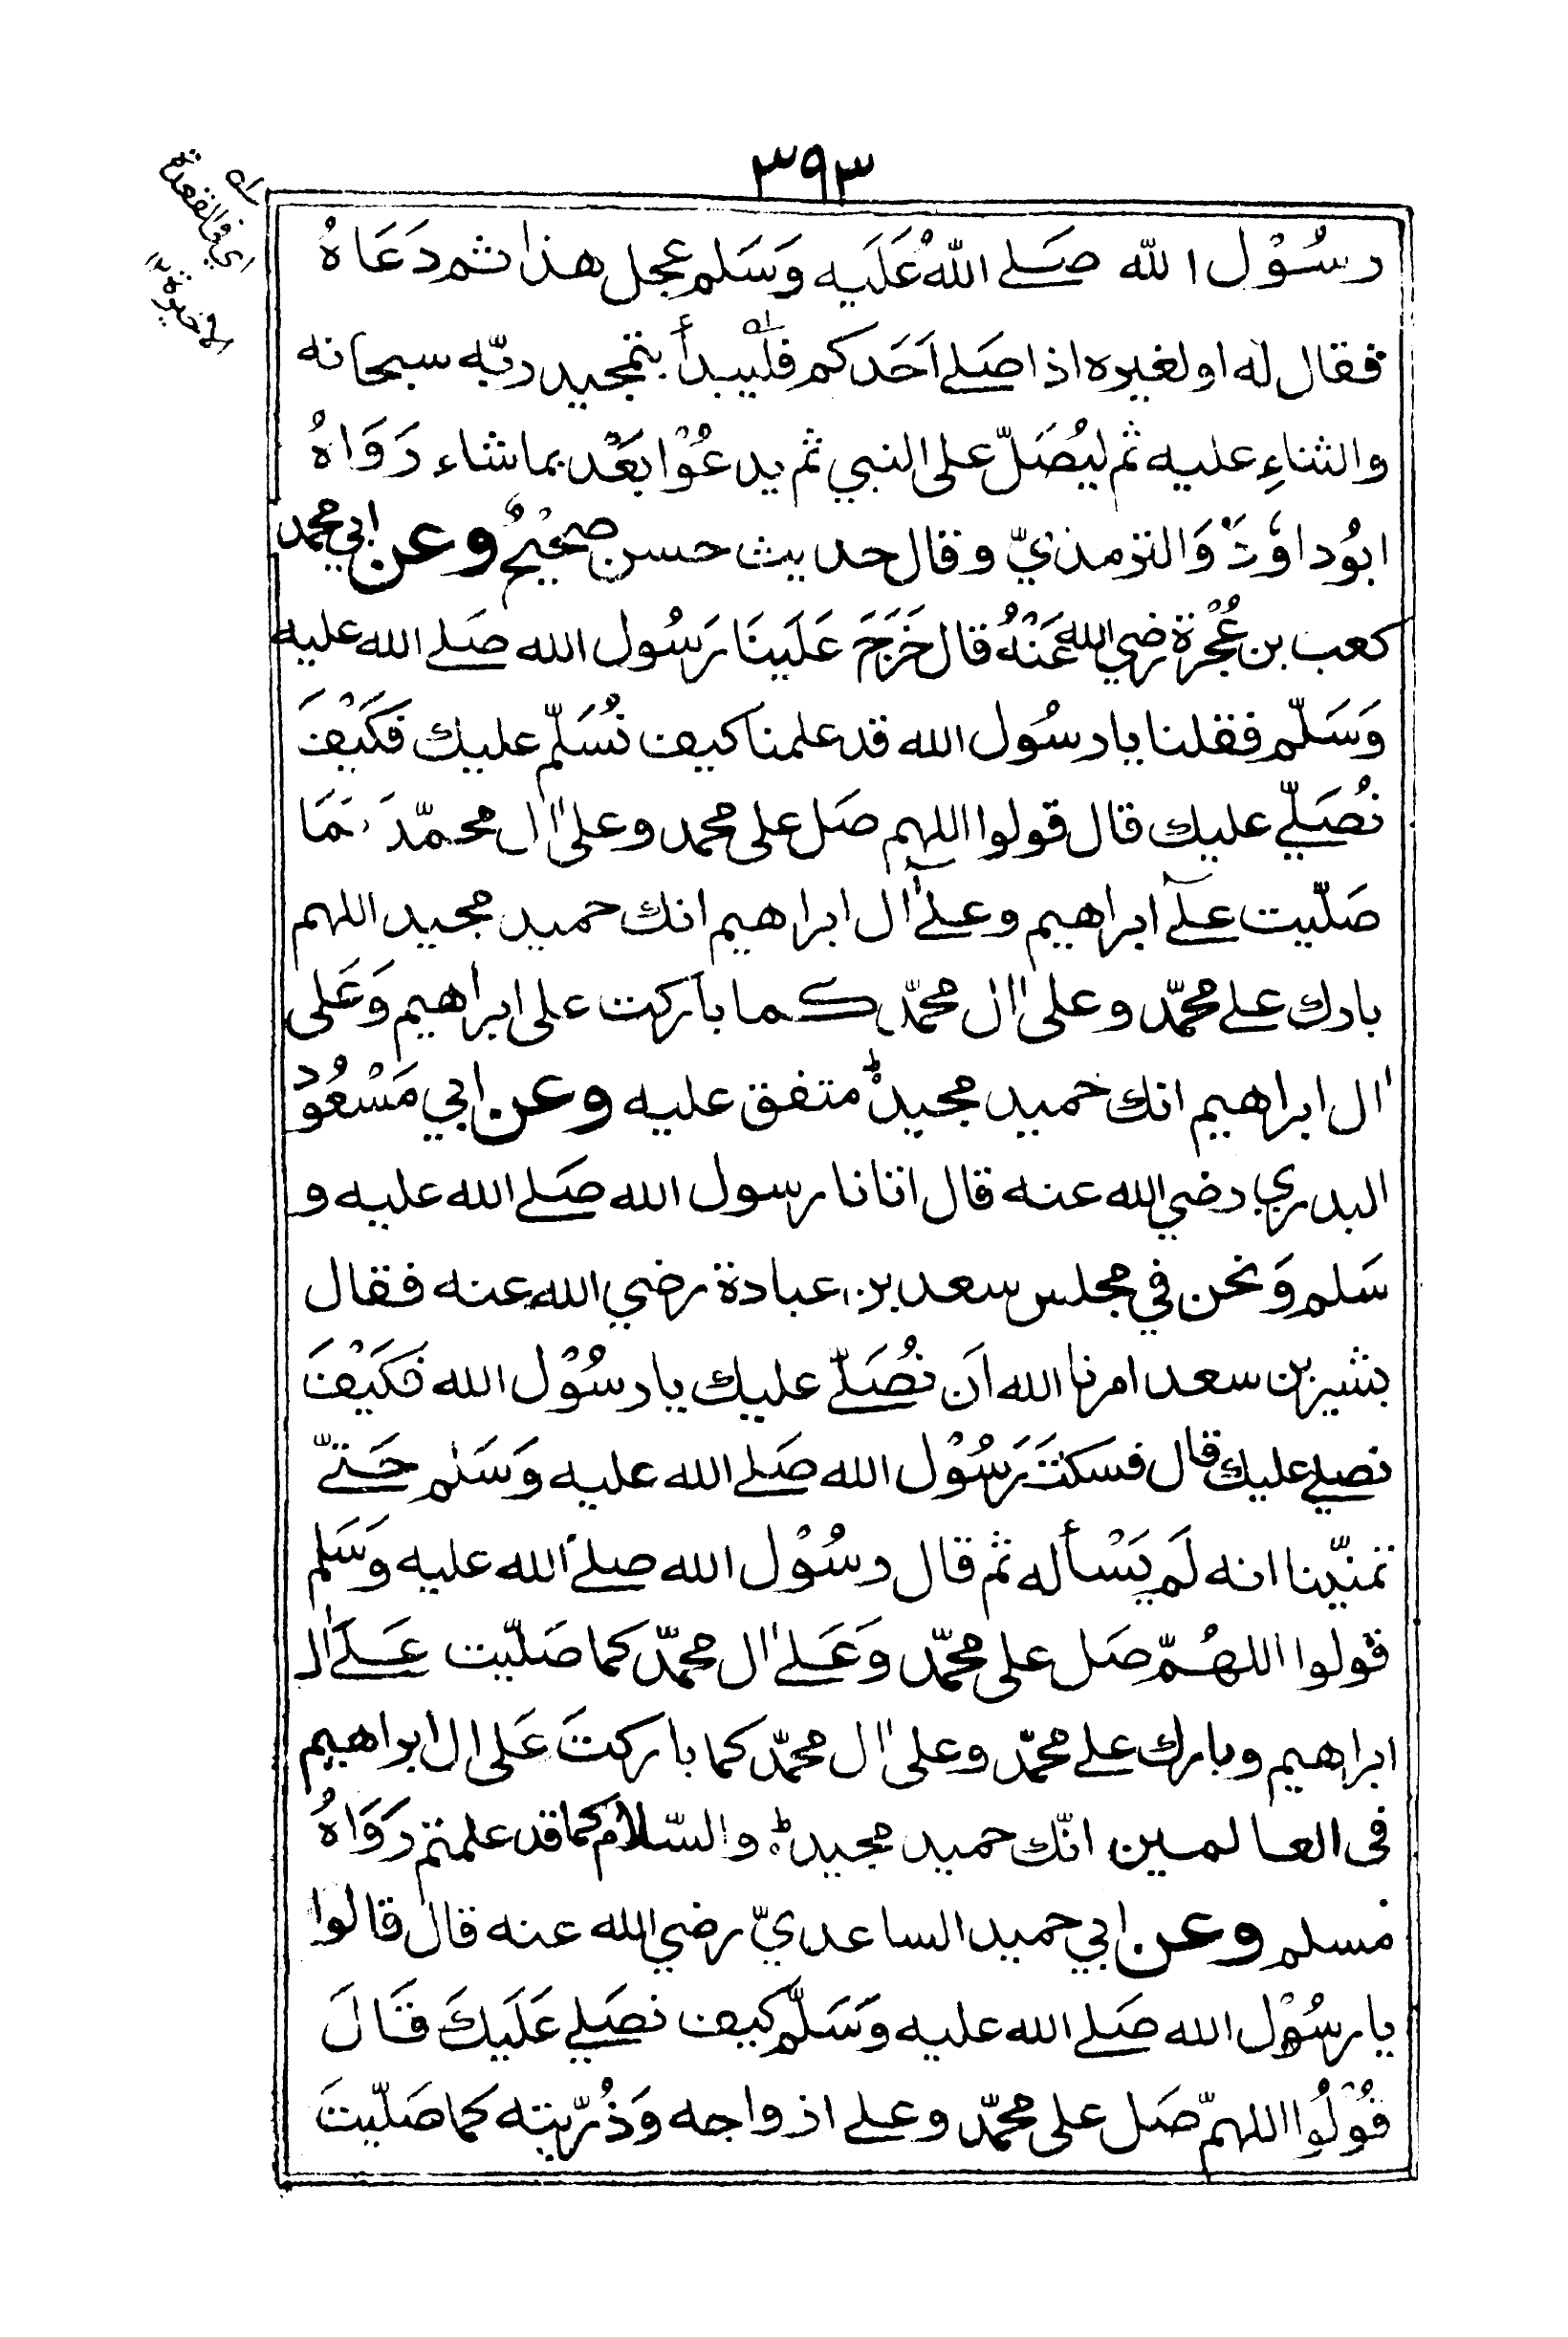 ٣٩٣
رسُوْل الله صَلے اللهُ عَلَيه وَسَلم عجل هذا ثم دَعَاهُ
فقال له او لغيره اذا صَلے اَحَدكم فليبدأ بتمجيد ربّه سبحانه
والثناءِ عليه ثم ليُصَلّ على النبي ثم يدعُوْا بَعْد بما شاء رَوَاهُ
ابُوداوٗدَ وَالترمذيّ وقال حديث حسن صحِيْحٌ وعن ابي محمد
كعب بن عُجْرة رضي الله عَنْهُ قال خَرَجَ عَلَينَا رَسُول الله صَلے الله عليه
وَسَلّم فقلنا يا رسُول الله قد علمنا كيف نُسَلّم عليك فَكَيْفَ
نُصَلّي عليك قال قولوا اللهم صَل على محمد وعلىٰ اٰل محمّد كمَا
صَلّيت علےٓ ابراهيم وعلےٓ اٰل ابراهيم انك حميد مجيد اللهم
بارك علے محمّد وعلىٰ اٰل محمّد كما باركت على ابراهيم وَعَلى
اٰل ابراهيم انك حميد مجيدٌ متفق عليه وعن ابي مَسْعُوْد
البدري رضي الله عنه قال اتانا رسول الله صَلے الله عليه و
سَلم وَنحن في مجلس سعد بن عبادة رضي الله عنه فقال
بشير بن سعد امرنا الله اَن نُصَلّے عليك يا رسُوْل الله فَكَيْفَ
نصلي عليك قال فسكتَ رَسُوْل الله صَلے الله عليه وَسَلم حَتّے
تمنّينا انه لَم يَسْأله ثم قال رسُوْل الله صلے الله عليه وَسَلم
قولوا اللهُمّ صَل على محمّد وَعَلےٰ اٰل محمّد كما صَلّيت عَلےٰ اٰل
ابراهيم وبارك علے محمّد وعلىٰ اٰل محمّد كما باركتَ عَلى اٰل ابراهيم
فى العالمين انّك حميد مجيد والسّلام كما قد علمتم رَوَاهُ
مسلم وعن ابي حميد الساعديّ رضي الله عنه قال قالوا
يا رسُوْل الله صَلے الله عليه وَسَلّم كيف نصَلي عَلَيكَ قَالَ
قُوْلُوا اللهمّ صَل على محمّد وعلے ازواجه وَذُرّيته كما صَلّيتَ